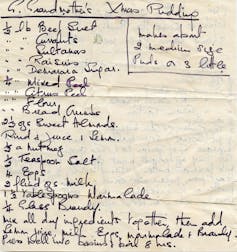 G. Grandmother's Xmas Pudding
½ lb Beef Suet
" " Currants
" " Sultanas
" " Raisins
" " Demerara Sugar.
makes about
2 medium size
Puds or 3 little
¼ " Mixed Peel
" " Citrus Peel
" " Flour
" " Bread Crumbs
2½ ozs Sweet Almonds.
Rind & Juice 1 Lemon.
½ a Nutmeg
½ Teaspoon Salt
4 Eggs
2 fluid ozs milk
1½ tablespoons Marmalade
½ Glass Brandy
Mix all dry ingredients together, then add
Lemon juice, milk, Eggs, marmalade & Brandy.
Press well into basins, boil 8 hrs.